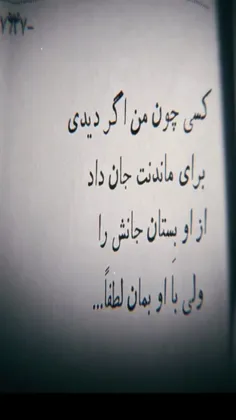 کسی چون من اگر دیدی
برای ماندنت جان داد
از او بِستان جانش را
ولی با او بمان لطفاً...